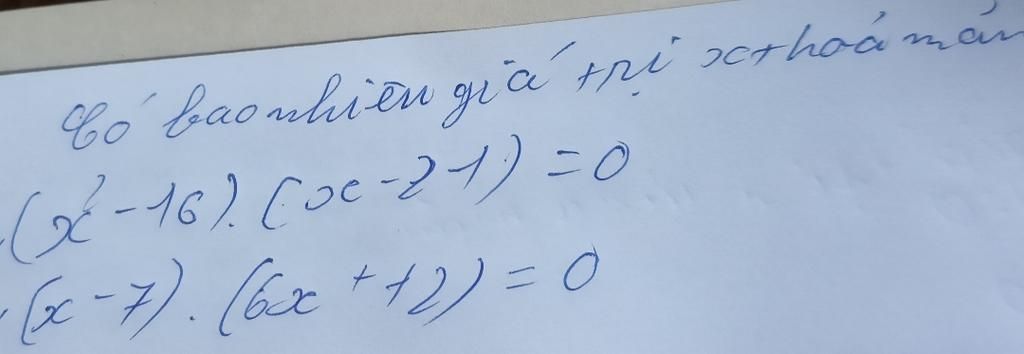 Có bao nhiêu giá trị x thoả mãn
(x² - 16). (x - 2 - 1) = 0
(x - 7). (6x + 12) = 0